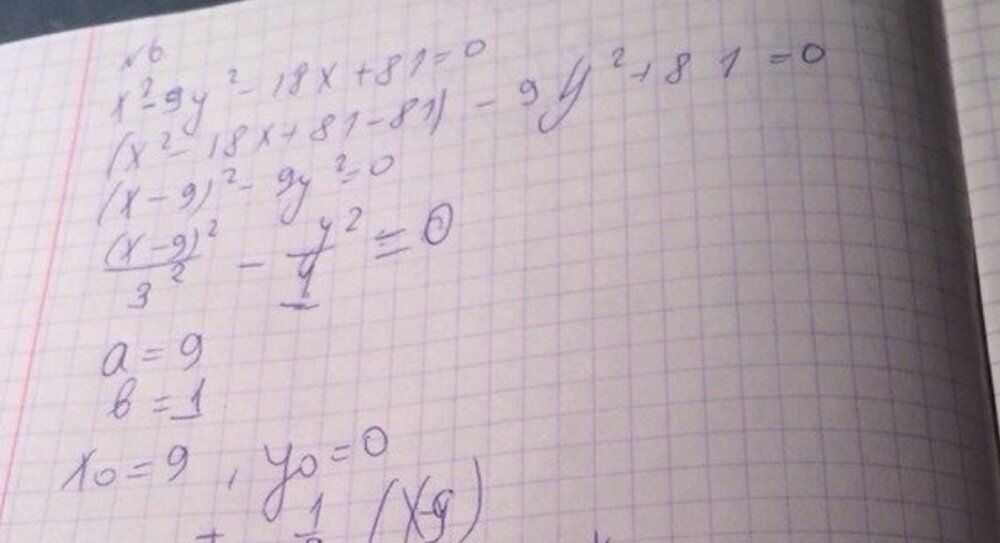 №6
x² - 9y² - 18x + 81 = 0
(x² - 18x + 81 - 81) - 9y² + 81 = 0
(x - 9)² - 9y² = 0
(x - 9)²/3² - y²/1 = 0
a = 9
b = 1
x₀ = 9, y₀ = 0
(x-9)